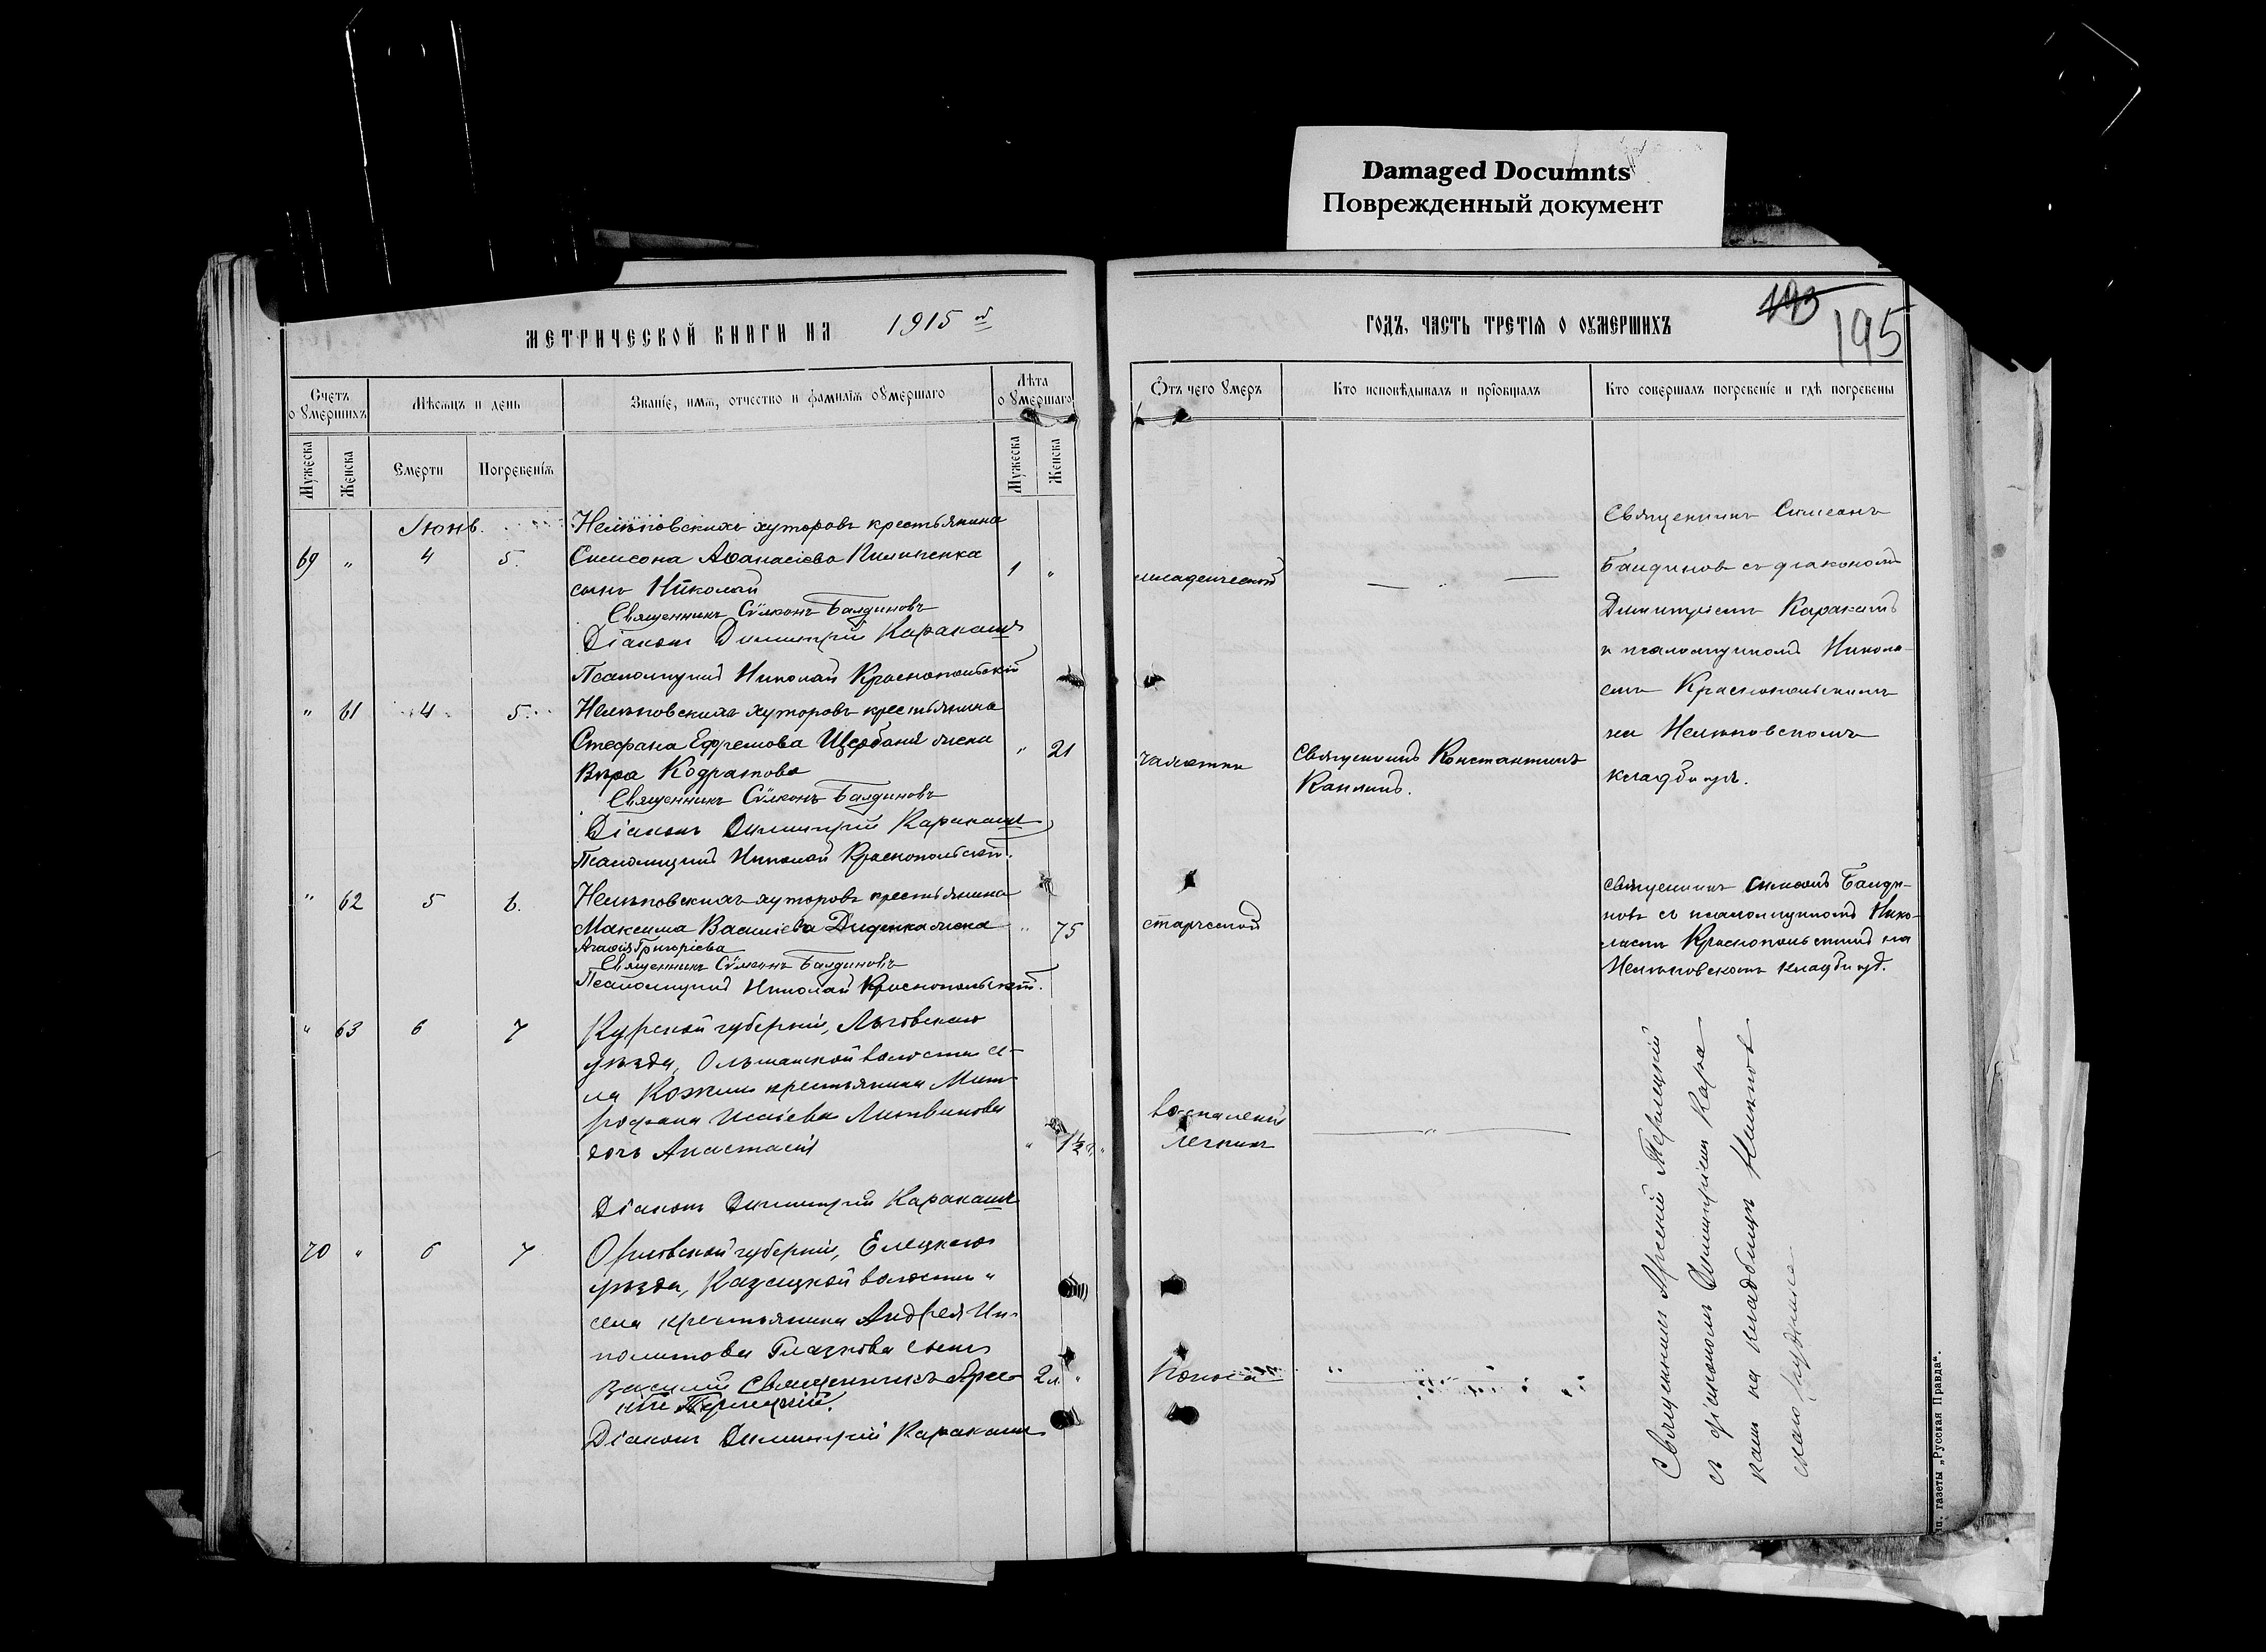 Damaged Documnts
Поврежденный документ
МЕТРИЧЕСКОЙ КНИГИ НА 1915 ой
ГОДЪ, ЧАСТЬ ТРЕТІЯ О ОУМЕРШИХЪ
193
195
Счетъ о умершихъ
Мѣсяцъ и день
Званіе, имя, отчество и фамилія оумершаго
Лѣта оумершаго
Отъ чего умеръ
Кто исповѣдывалъ и пріобщалъ
Кто совершалъ погребеніе и гдѣ погребены
Мужеска
Женска
Смерти
Погребенія
Мужеска
Женска
Іюнь.
Нелѣповскихъ хуторовъ крестьянина
69 " 4 5. Симеона Аѳанасіева Пилипенка
сынъ Николай 1 " младенческой
Священникъ Сѵмеонъ Балдиновъ
Діаконъ Димитрій Каракашъ
Псаломщикъ Николай Краснопольскій
Священникъ Симеонъ
Балдиновъ съ діакономъ
Димитріемъ Каракашъ
и псаломщикомъ Никола-
емъ Краснопольскимъ
на Нелѣповскомъ
кладбищѣ.
" 61 4 5. Нелѣповскихъ хуторовъ крестьянина
Стефана Ефремова Щербаня жена " 21
Вѣра Кодратова
чахотки
Священникъ Константинъ
Священникъ Сѵмеонъ Балдиновъ
Діаконъ Димитрій Каракашъ
Псаломщикъ Николай Краснопольскій.
" 62 5 6. Нелѣповскихъ хуторовъ крестьянина
Максима Василіева Диденка жена " 75 старческой
Агаѳія Григоріева
Священникъ Сѵмеонъ Балдиновъ
Псаломщикъ Николай Краснопольскій.
Священникъ Симеонъ Балди-
новъ съ псаломщикомъ Нико-
лаемъ Краснопольскимъ на
Нелѣповскомъ кладбищѣ.
" 63 6 7 Курской губерніи, Льговскаго
уѣзда, Ольшанской волости се-
ла Кожли крестьянина Мит-
рофана Исаіева Литвинова
дочь Анастасія " 1½
воспаленія
легкихъ
Діаконъ Димитрій Каракашъ
70 " 6 7 Орловской губерніи, Елецкаго
уѣзда, Казацкой волости "
села крестьянина Андрея Ип-
политова Глазкова сынъ
Василій Священникъ Арсе- 2 л. " поноса
ній Терлецкій.
Діаконъ Димитрій Каракашъ
Священникъ Арсеній Терлецкій
съ діакономъ Димитріемъ Кара
кашъ на кладбищѣ Нелѣпов
скаго рудника
тип. газеты „Русская Правда“.